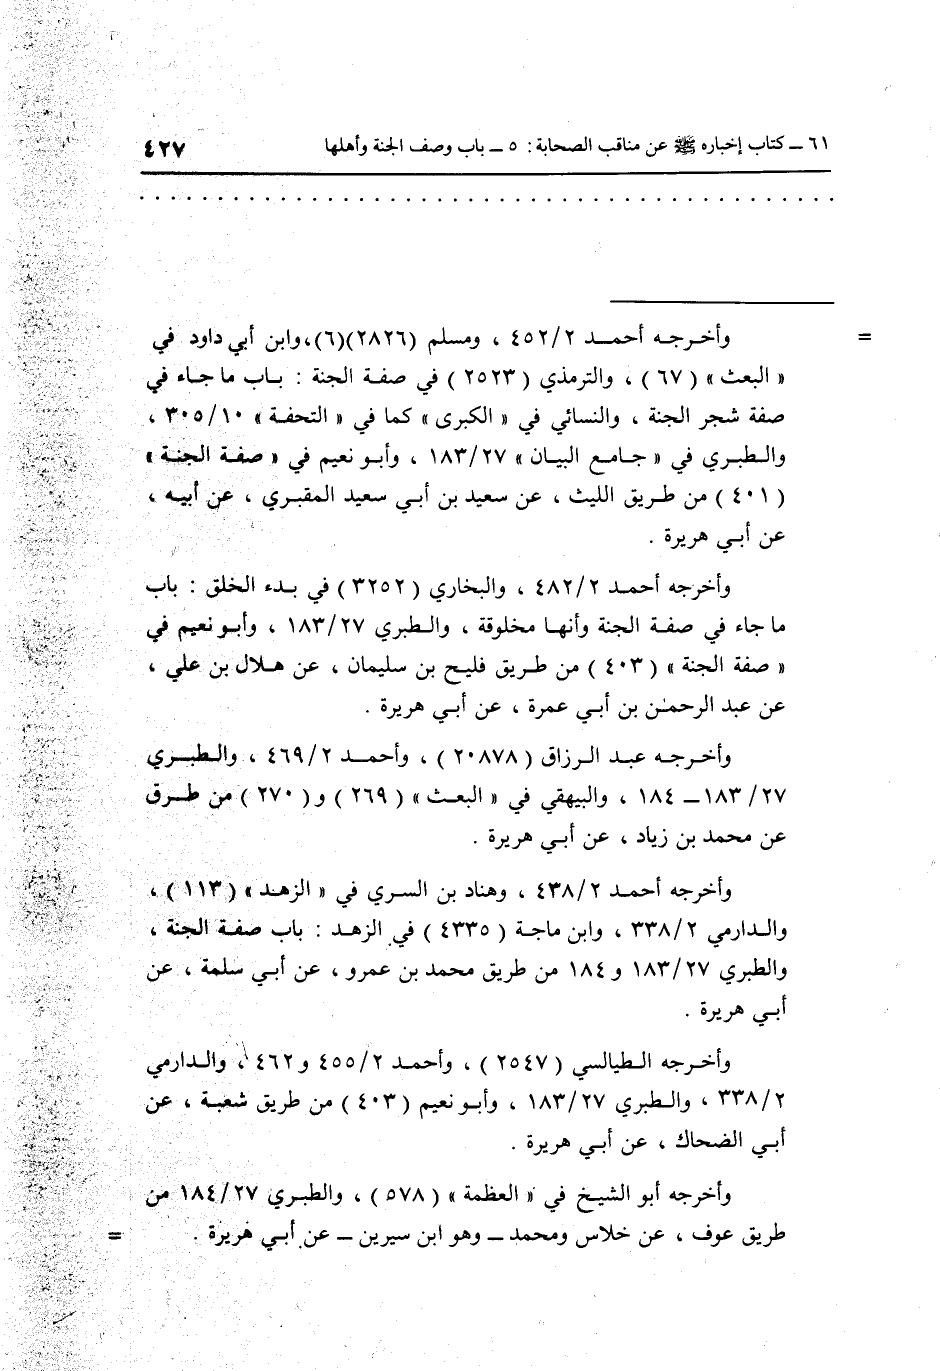 ٦١ ــ كتاب إخباره ﷺ عن مناقب الصحابة : ٥ ــ باب وصف الجنة وأهلها ٤٢٧
. . . . . . . . . . . . . . . . . . . . . . . . . . . . . . . . . . . . . . . . . . . .
= وأخرجه أحمد ٤٥٢/٢ ، ومسلم (٢٨٢٦)(٦)،وابن أبي داود في
« البعث » ( ٦٧ ) ، والترمذي ( ٢٥٢٣ ) في صفة الجنة : باب ما جاء في
صفة شجر الجنة ، والنسائي في « الكبرى » كما في « التحفة » ٣٠٥/١٠ ،
والطبري في « جامع البيان » ١٨٣/٢٧ ، وأبو نعيم في « صفة الجنة »
( ٤٠١ ) من طريق الليث ، عن سعيد بن أبي سعيد المقبري ، عن أبيه ،
عن أبي هريرة .
وأخرجه أحمد ٤٨٢/٢ ، والبخاري ( ٣٢٥٢ ) في بدء الخلق : باب
ما جاء في صفة الجنة وأنها مخلوقة ، والطبري ١٨٣/٢٧ ، وأبو نعيم في
« صفة الجنة » ( ٤٠٣ ) من طريق فليح بن سليمان ، عن هلال بن علي ،
عن عبد الرحمٰن بن أبي عمرة ، عن أبي هريرة .
وأخرجه عبد الرزاق ( ٢٠٨٧٨ ) ، وأحمد ٤٦٩/٢ ، والطبري
٢٧/ ١٨٣ــ ١٨٤ ، والبيهقي في « البعث » ( ٢٦٩ ) و ( ٢٧٠ ) من طرق
عن محمد بن زياد ، عن أبي هريرة .
وأخرجه أحمد ٤٣٨/٢ ، وهناد بن السري في « الزهد » ( ١١٣ ) ،
والدارمي ٣٣٨/٢ ، وابن ماجة ( ٤٣٣٥ ) في الزهد : باب صفة الجنة ،
والطبري ١٨٣/٢٧ و ١٨٤ من طريق محمد بن عمرو ، عن أبي سلمة ، عن
أبي هريرة .
وأخرجه الطيالسي ( ٢٥٤٧ ) ، وأحمد ٤٥٥/٢ و ٤٦٢ ، والدارمي
٣٣٨/٢ ، والطبري ١٨٣/٢٧ ، وأبو نعيم ( ٤٠٣ ) من طريق شعبة ، عن
أبي الضحاك ، عن أبي هريرة .
وأخرجه أبو الشيخ في « العظمة » ( ٥٧٨ ) ، والطبري ١٨٤/٢٧ من
طريق عوف ، عن خلاس ومحمد ــ وهو ابن سيرين ــ عن أبي هريرة . =